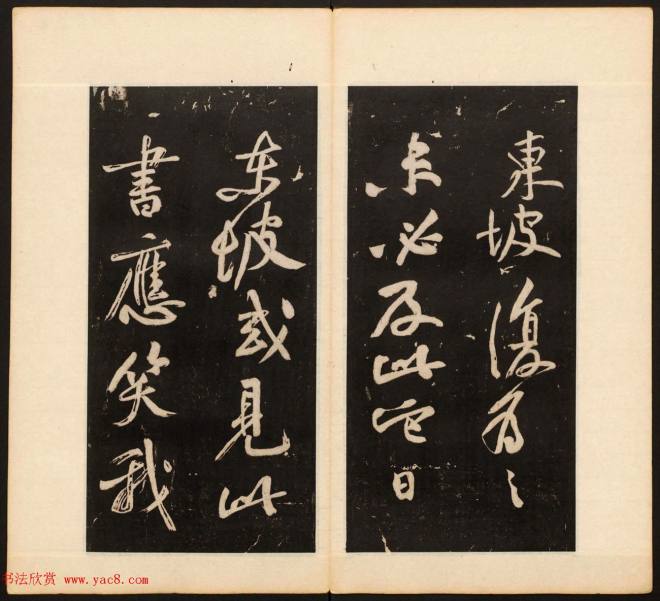 東坡復為之
未必及此它日
東坡或見此
書應笑我
书法欣赏 www.yac8.com